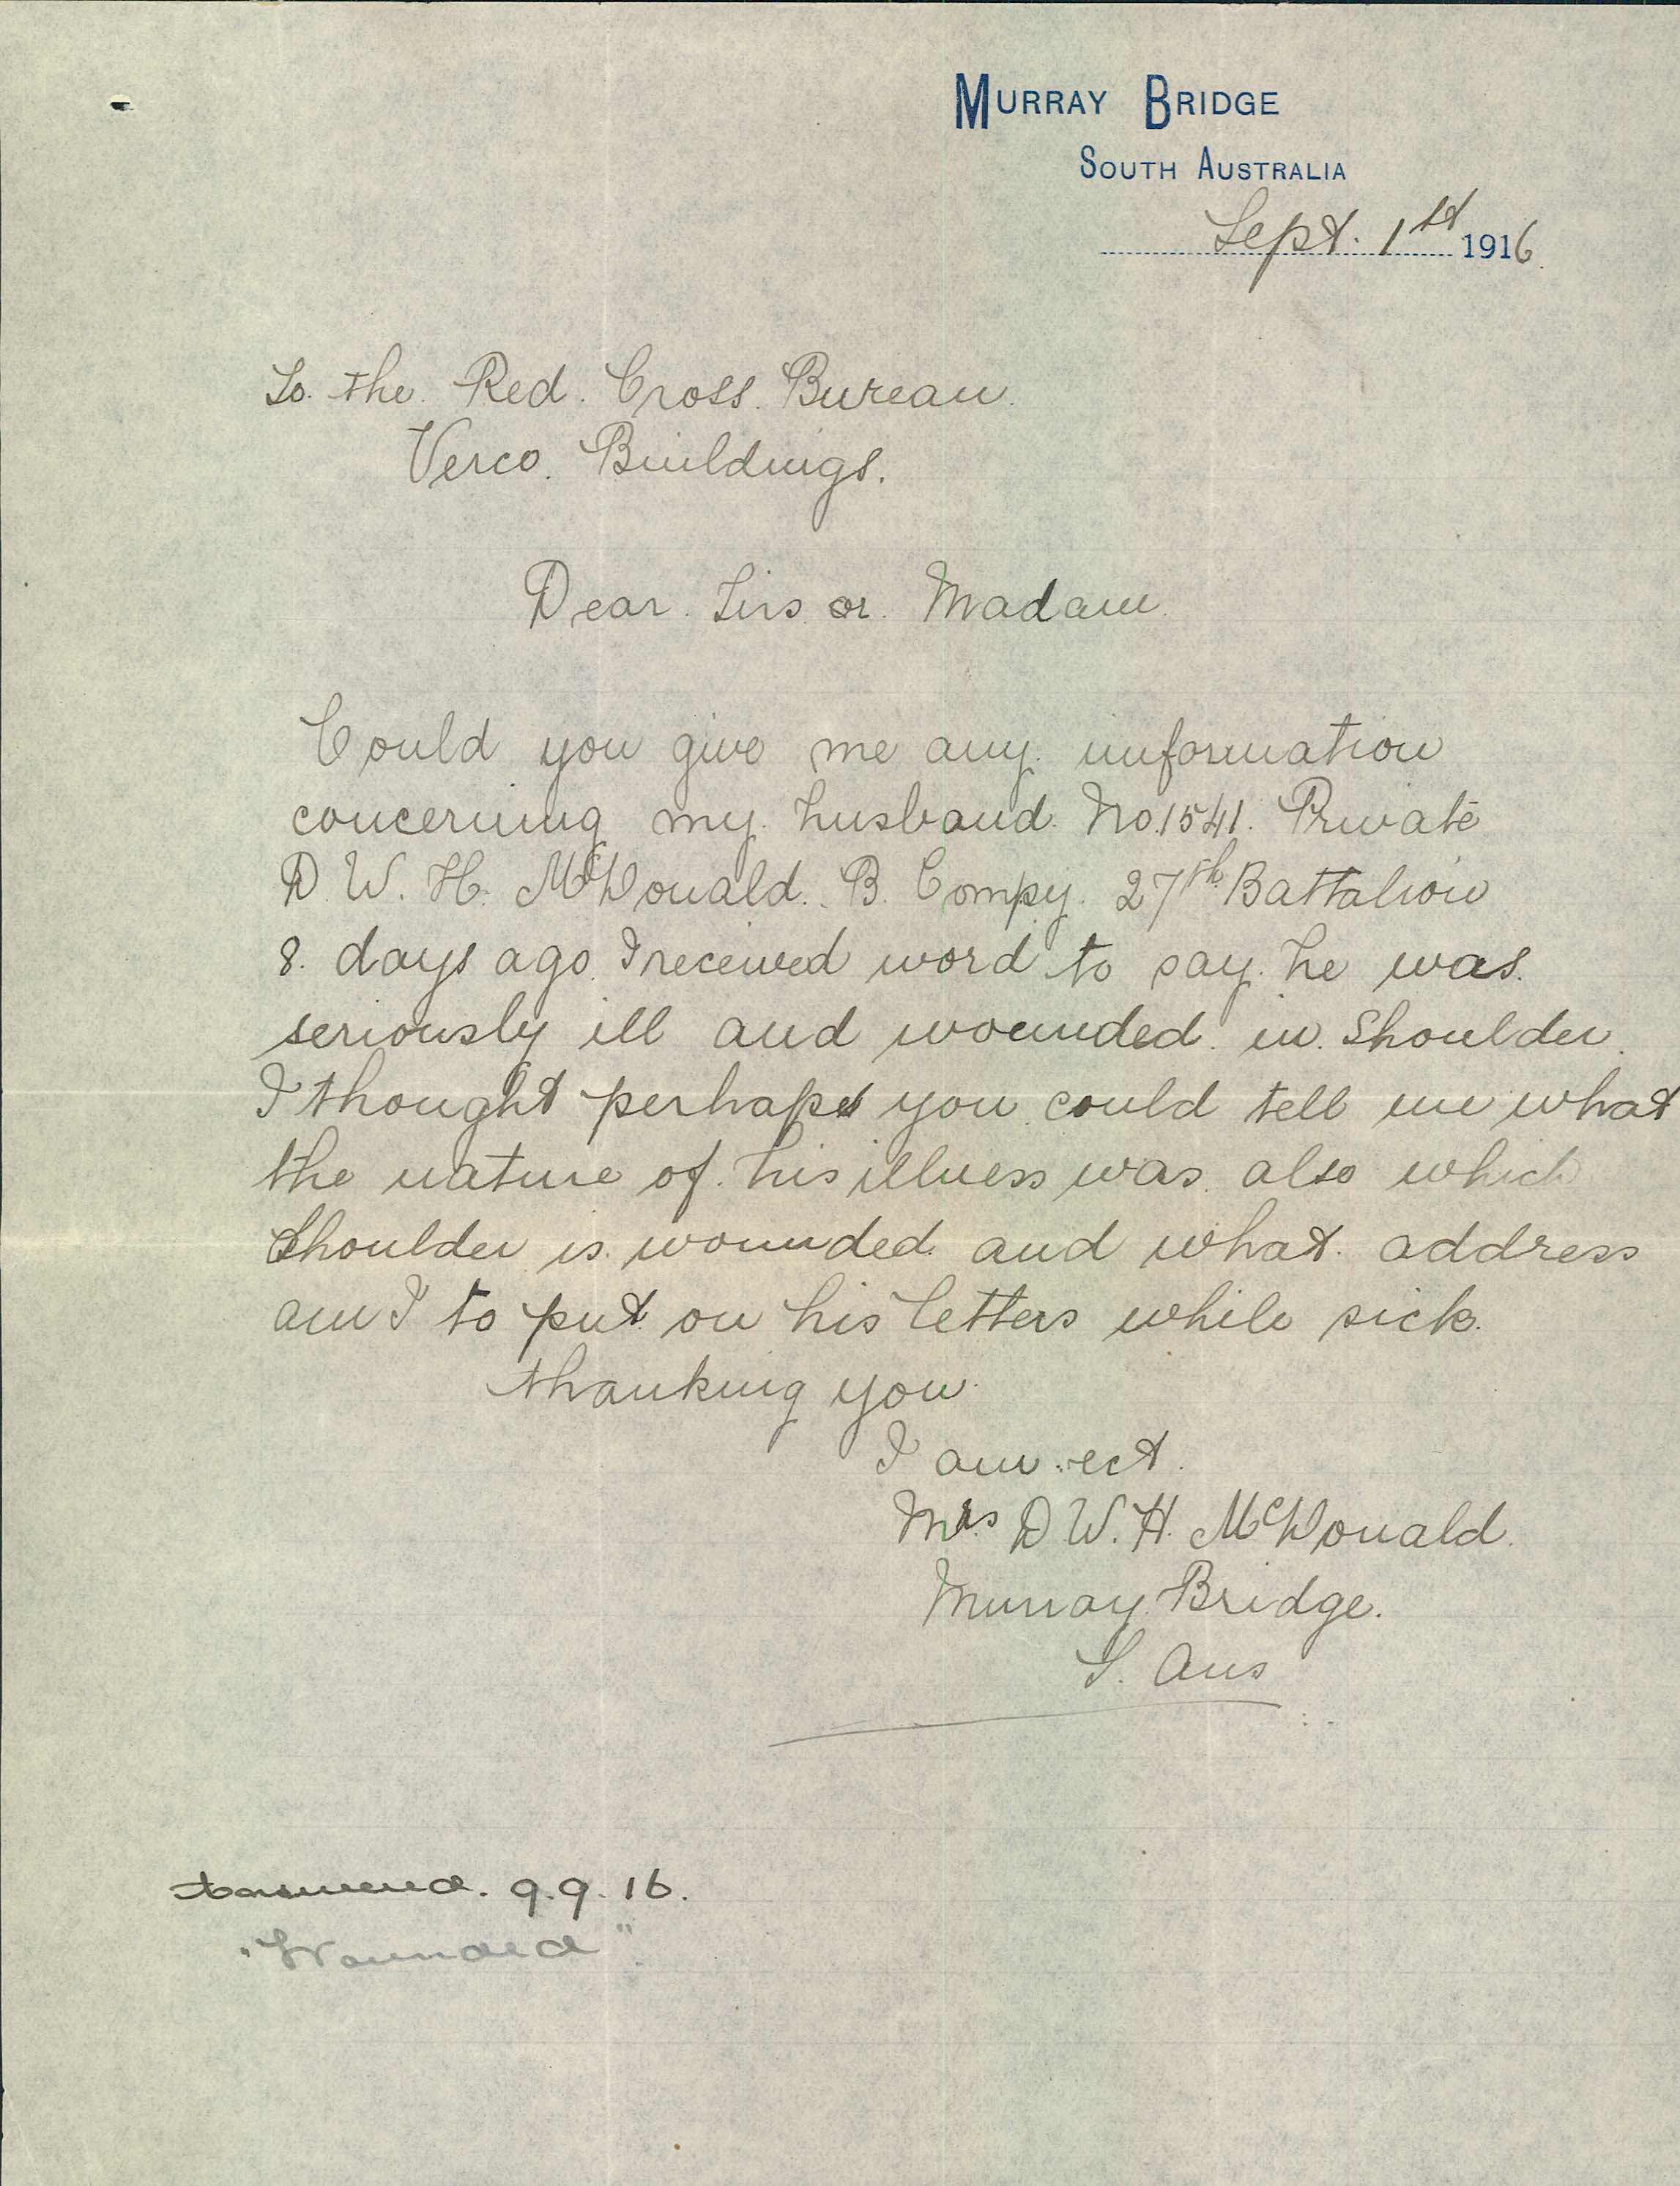 MURRAY BRIDGE
SOUTH AUSTRALIA
Sept. 1st 1916.
To. the. Red. Cross. Bureau.
Verco. Buildings.
Dear. Sirs. or. Madam.
Could you give me any. imformation
concerning my. husband. No.1541. Private
D. W. H. McDonald. B. Compy. 27th Battalion
8. days ago. I received word to say. he was.
seriously ill and wounded. in. Shoulder.
I thought perhaps you could tell me what
the nature of. his illness was. also which
Shoulder is. wounded. and what. address
am I to put on his letters while sick.
thanking you.
I am. ect.
Mrs D W. H. McDonald.
Murray Bridge.
S. Aus
9.9.16.
"Wounded"